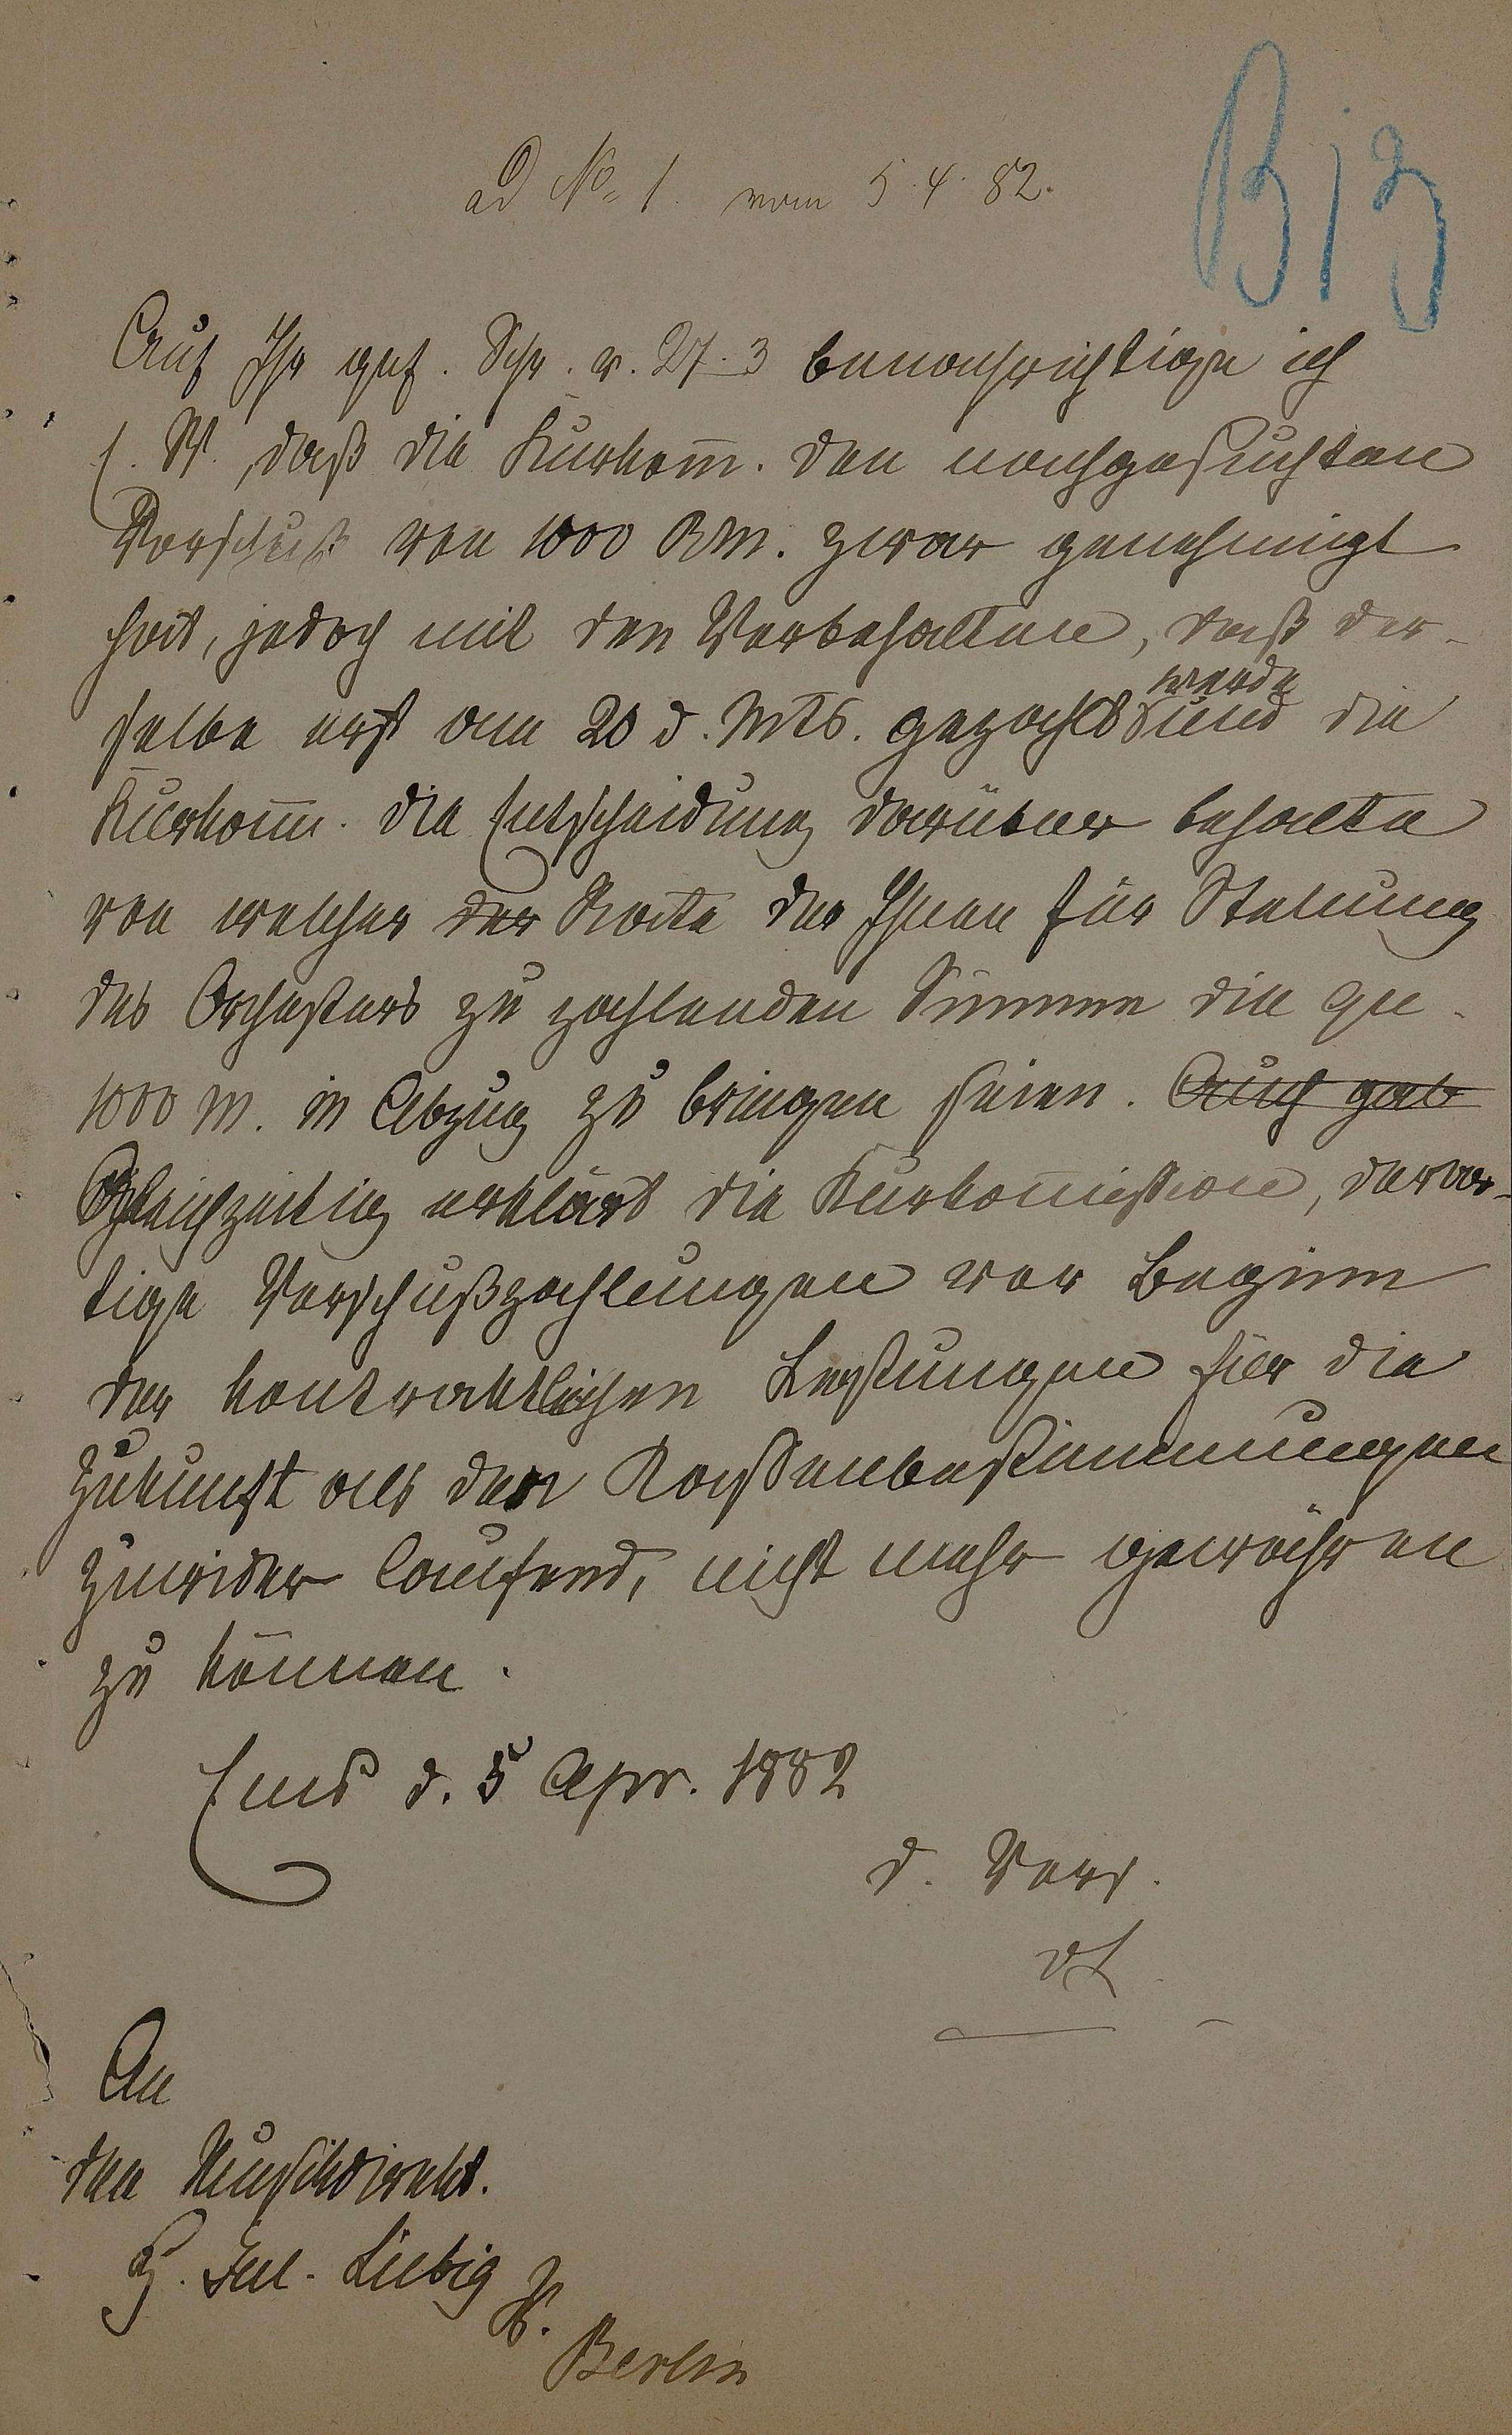 B j 3
ad No 1. vom 5.4.82.
Auf Ihr gef. Schr. v. 27.3 benachrichtige ich
E. W., daß die Kurkom̅. den nachgesuchten
Vorschuß von 1000 RM. zwar genehmigt
hat, jedoch mit den Vorbehalten, daß der-
selbe erst am 20 d. Mts. gezahlt werde und die
Kurkom̅. die Entscheidung darüber behalte
von welcher der Rate der Ihnen für Stellung
des Orchesters zu zahlenden Summe die qu.
1000 M. in Abzug zu bringen seien. Auch gab
Gleichzeitig erklärt die Kurkom̅ission, derar-
tige Vorschußzahlungen vor Beginn
der kontraktlichen Leistungen für die
Zukunft als den Kassenbestimmungen
zuwider laufend, nicht mehr gewähren
zu können.
Ems d. 5 Apr. 1882
d. Vors.
An
den Musikdirekt.
H. Jul. Liebig
Berlin